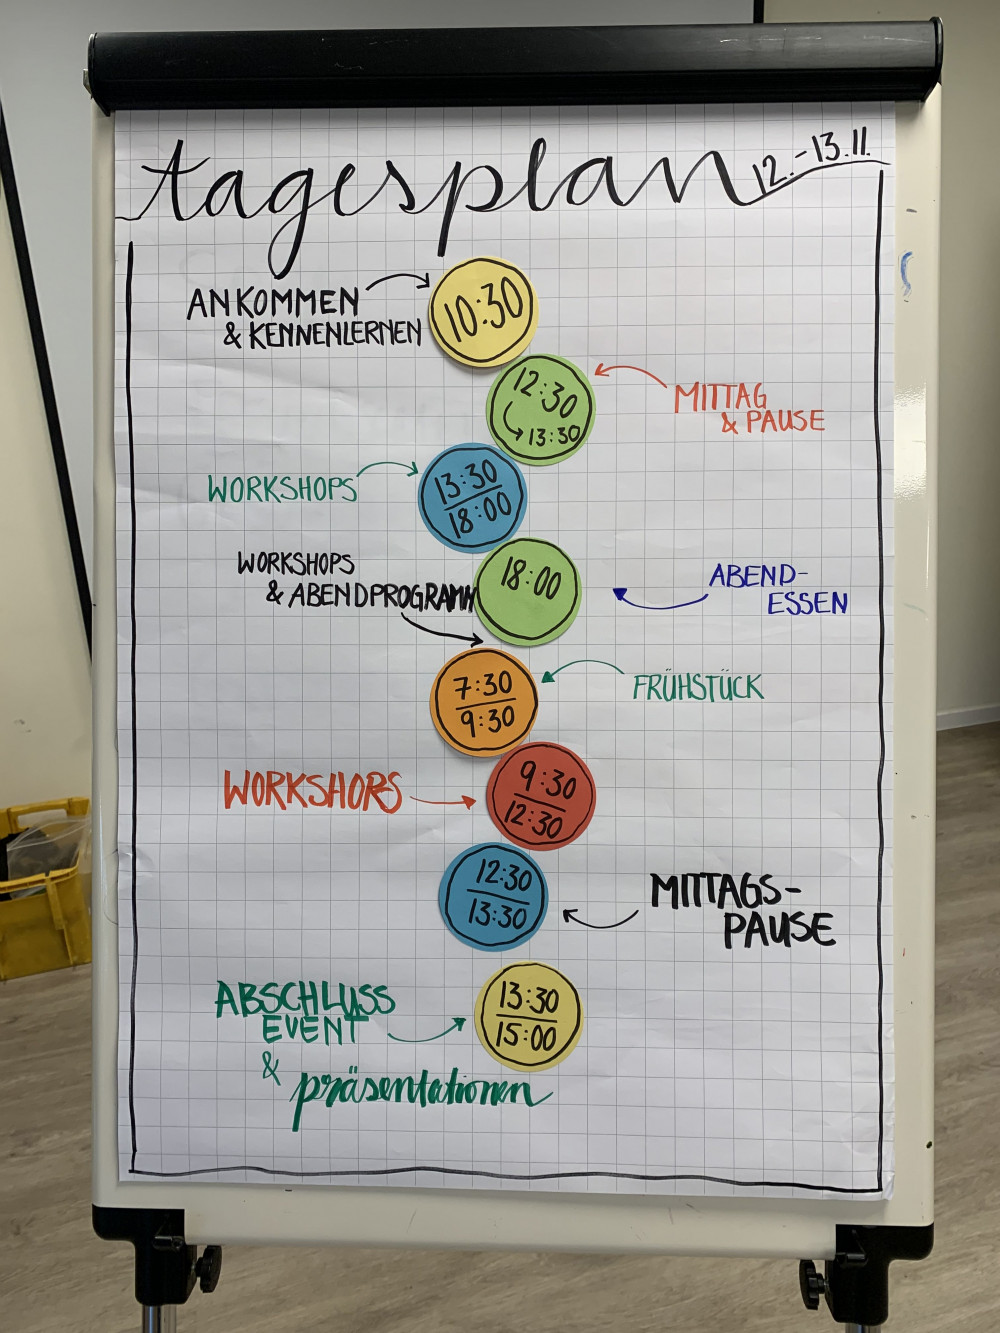 tagesplan 12.-13.11.
ANKOMMEN
& KENNENLERNEN
10:30
12:30
13:30
MITTAG
& PAUSE
WORKSHOPS
13:30
18:00
WORKSHOPS
& ABENDPROGRAMM
18:00
ABEND-
ESSEN
7:30
9:30
FRÜHSTÜCK
WORKSHOPS
9:30
12:30
12:30
13:30
MITTAGS-
PAUSE
ABSCHLUSS
EVENT
&
präsentationen
13:30
15:00